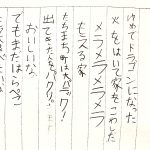 ゆめでドラゴンになった
火をはいて家をこわした
メラメラメラメラ
もえる家
たちまち町は大パニック!
出てきた人をパクリ。
おいしいな。
でもまだはらぺこ